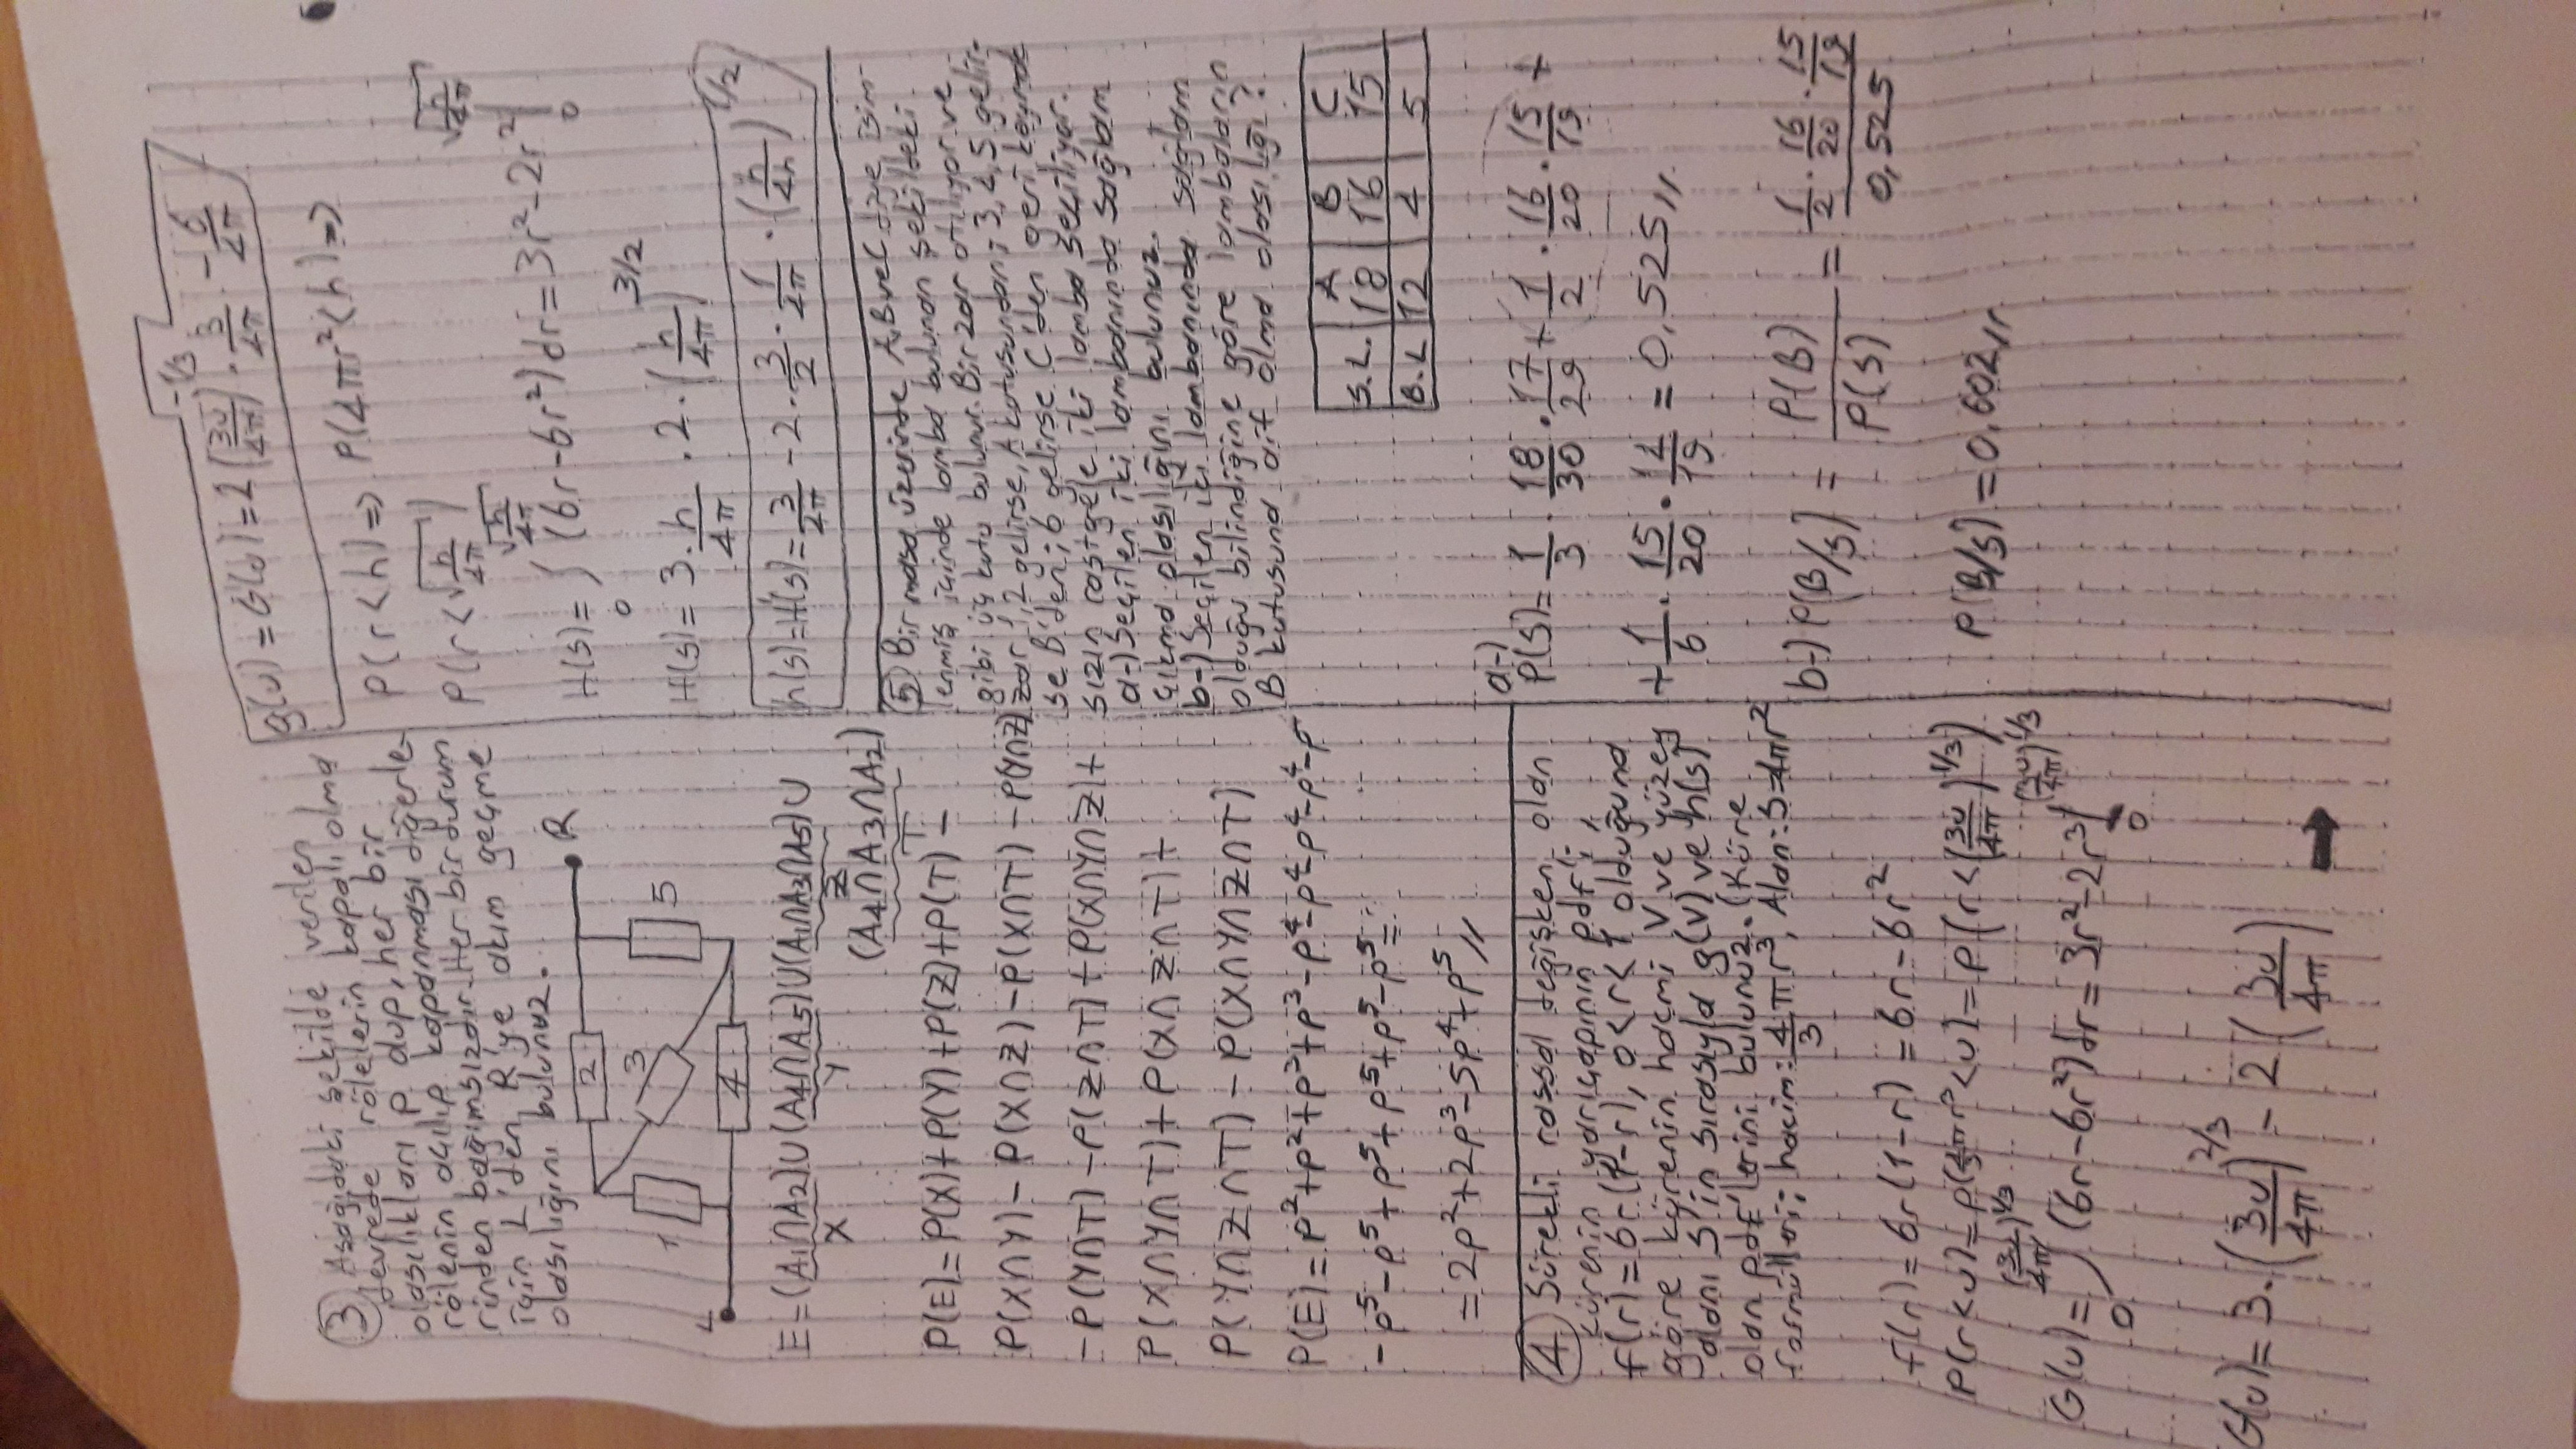 ③ Aşağıdaki şekilde verilen
devrede rölelerin kapalı olma
olasılıkları p olup, her bir
rölenin açılıp kapanması diğerle-
rinden bağımsızdır. Her bir durum
için L'den R'ye akım geçme
olasılığını bulunuz.
2
R
3
1
5
L
4
E=(A₁∩A₂)∪(A₄∩A₅)∪(A₁∩A₃∩A₅)∪
X Y Z
(A₄∩A₃∩A₂)
T
P(E)=P(X)+P(Y)+P(Z)+P(T)-
P(X∩Y)-P(X∩Z)-P(X∩T)-P(Y∩Z)
-P(Y∩T)-P(Z∩T)+P(X∩Y∩Z)+
P(X∩Y∩T)+P(X∩Z∩T)+
P(Y∩Z∩T)-P(X∩Y∩Z∩T)
P(E)=p²+p²+p³+p³-p⁴-p⁴-p⁴-p⁴-p
-p⁵-p⁵+p⁵+p⁵+p⁵-p⁵=
=2p²+2p³-5p⁴+p⁵//
④ Sürekli rassal değişken olan
kürenin yarıçapının pdf'i,
f(r)=6r(1-r), 0<r<1 olduğuna
göre kürenin hacmi V ve yüzey
alanı S'in sırasıyla g(V) ve h(s)
olan pdf'lerini bulunuz. (Küre
formülleri; hacim: 4/3 πr³, Alan: S=4πr²
f(r)=6r(1-r)=6r-6r²
P(r<u)=P(4/3 πr³<u)=P(r<(3u/4π)^1/3)
G(u)=∫₀^(3u/4π)^1/3 (6r-6r²)dr=3r²-2r³|₀^(3u/4π)^1/3
G(u)=3.(3u/4π)^2/3 - 2(3u/4π) →
g(u)=G'(u)=2(3u/4π)^-1/3 . 3/4π - 6/4π
P(r<h)=> P(4πr²<h)=>
P(r<√(h/4π))
H(s)=∫₀^√(h/4π) (6r-6r²)dr=3r²-2r²|₀^√(h/4π)
H(s)=3.h/4π . 2.(h/4π)^3/2
h(s)=H'(s)=3/4π - 2.3/2 . 1/4π . (h/4h)^1/2
⑤ Bir masa üzerinde A,B ve C diye isim-
lenmiş içinde lamba bulunan şekildeki
gibi üç kutu bulunur. Bir zar atılıyor ve
zar 1,2 gelirse, A kutusundan; 3,4,5 gelir-
se B'den; 6 gelirse C'den geri koymak
sızın rastgele iki lamba seçiliyor.
a-) Seçilen iki lambanında sağlam
çıkma olasılığını bulunuz.
b-) Seçilen iki lambanında sağlam
olduğu bilindiğine göre lambaların
B kutusuna ait olma olasılığı?
A B C
S.L. 18 16 15
B.L 12 4 5
a-)
P(S)=1/3 . 18/30 . 17/29 + 1/2 . 16/20 . 15/19 +
+1/6 . 15/20 . 14/19 = 0,525//
b-) P(B/S) = P(B)/P(S) = (1/2 . 16/20 . 15/19)/0,525
P(B/S)=0.602//